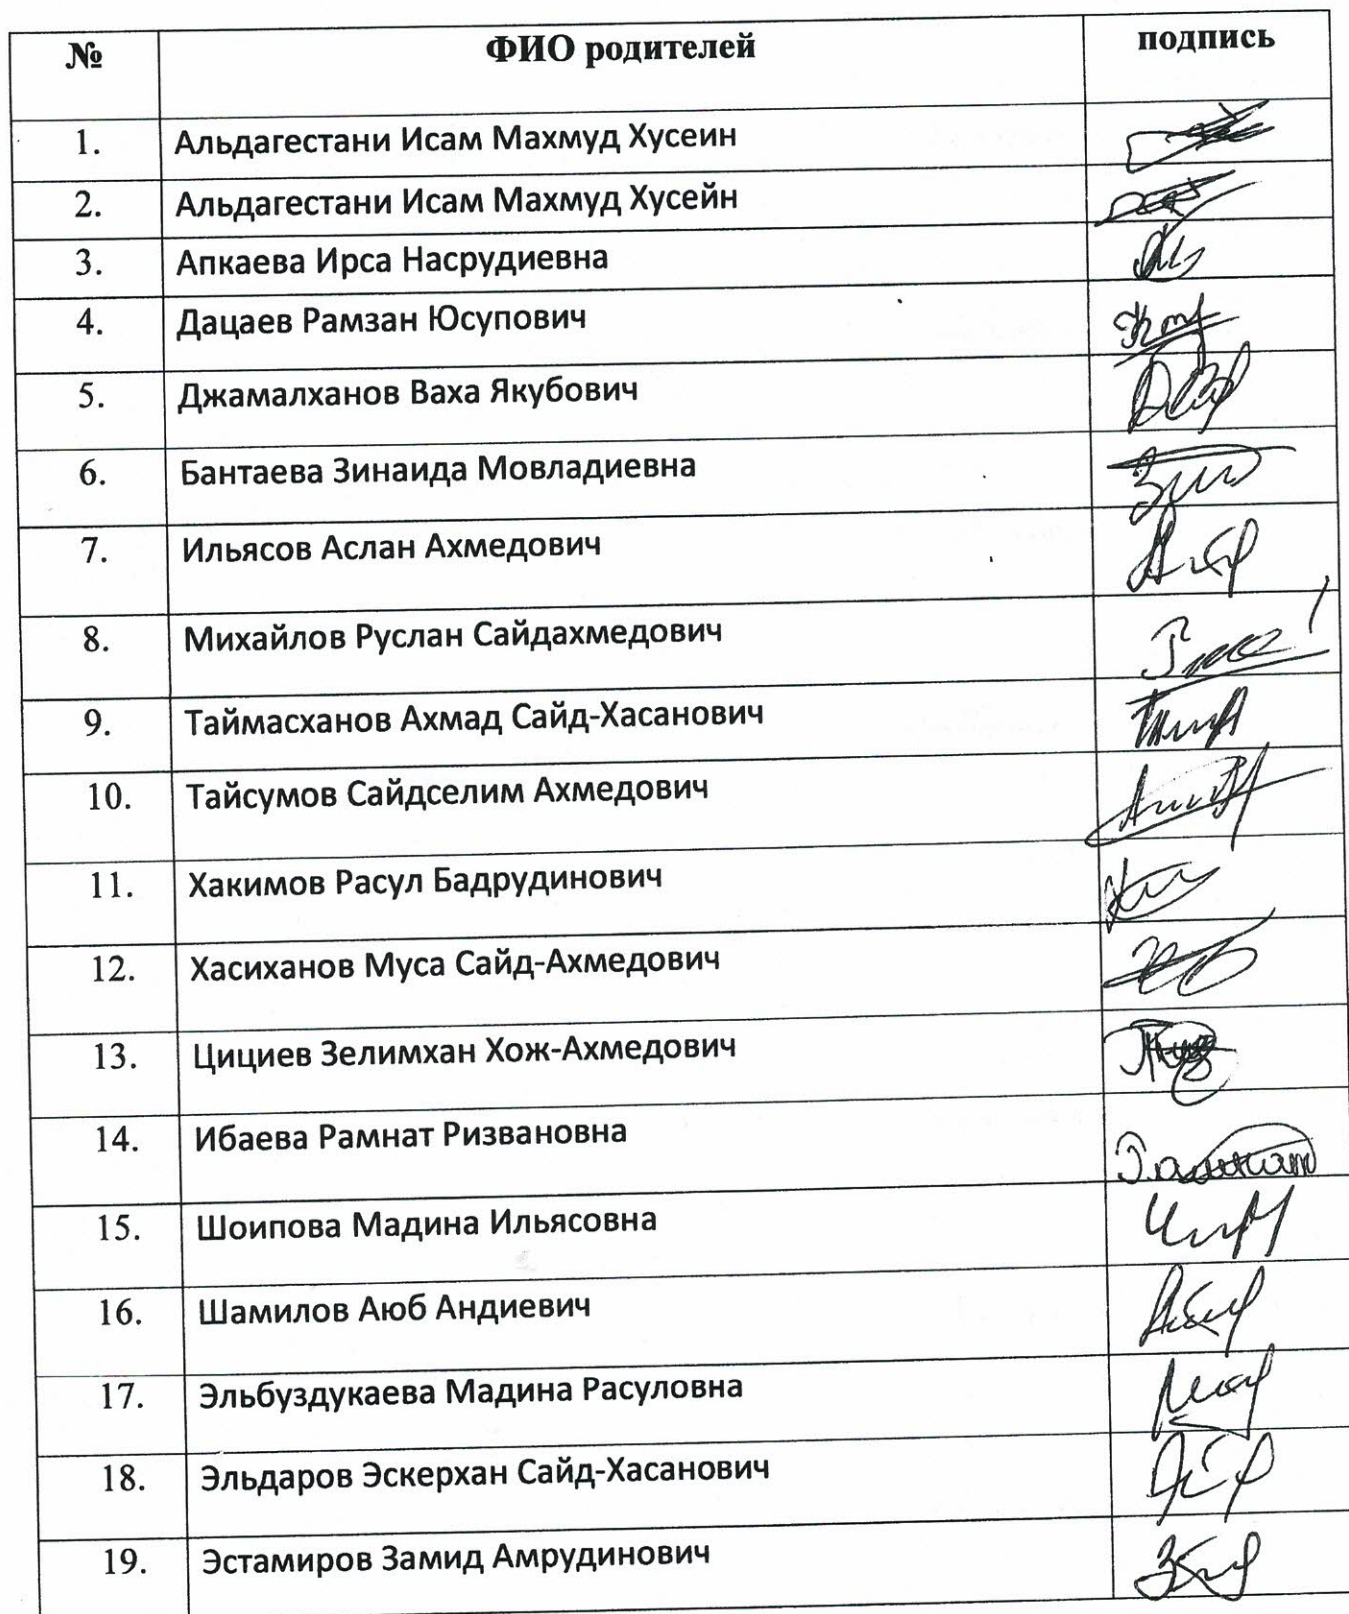 № ФИО родителей подпись
1. Альдагестани Исам Махмуд Хусеин
2. Альдагестани Исам Махмуд Хусейн
3. Апкаева Ирса Насрудиевна
4. Дацаев Рамзан Юсупович
5. Джамалханов Ваха Якубович
6. Бантаева Зинаида Мовладиевна
7. Ильясов Аслан Ахмедович
8. Михайлов Руслан Сайдахмедович
9. Таймасханов Ахмад Сайд-Хасанович
10. Тайсумов Сайдселим Ахмедович
11. Хакимов Расул Бадрудинович
12. Хасиханов Муса Сайд-Ахмедович
13. Цициев Зелимхан Хож-Ахмедович
14. Ибаева Рамнат Ризвановна
15. Шоипова Мадина Ильясовна
16. Шамилов Аюб Андиевич
17. Эльбуздукаева Мадина Расуловна
18. Эльдаров Эскерхан Сайд-Хасанович
19. Эстамиров Замид Амрудинович